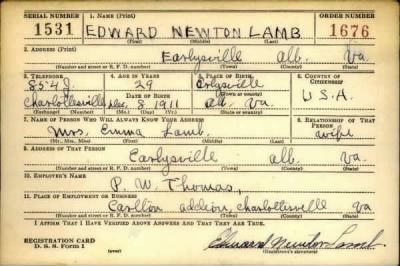 SERIAL NUMBER 1. NAME (Print) ORDER NUMBER
1531 EDWARD NEWTON LAMB 1676
(First) (Middle) (Last)
2. ADDRESS (Print)
Earlysville Alb. Va.
(Number and street or R. F. D. number) (Town) (County) (State)
3. TELEPHONE 4. AGE IN YEARS 5. PLACE OF BIRTH 6. COUNTRY OF CITIZENSHIP
854J 29 Earlysville
Charlottesville DATE OF BIRTH (Town or county)
Dec. 8 1911 Alb. Va. U.S.A.
(Exchange) (Number) (Mo.) (Day) (Yr.) (State or country)
7. NAME OF PERSON WHO WILL ALWAYS KNOW YOUR ADDRESS 8. RELATIONSHIP OF THAT PERSON
Mrs. Emma Lamb. wife
(Mr., Mrs., Miss) (First) (Middle) (Last)
9. ADDRESS OF THAT PERSON
Earlysville Alb. Va.
(Number and street or R. F. D. number) (Town) (County) (State)
10. EMPLOYER'S NAME
P. W. Thomas,
11. PLACE OF EMPLOYMENT OR BUSINESS
Carlton addion, Charlottesville Va
(Number and street or R. F. D. number) (Town) (County) (State)
I AFFIRM THAT I HAVE VERIFIED ABOVE ANSWERS AND THAT THEY ARE TRUE.
REGISTRATION CARD
D. S. S. Form 1
Edward Newton Lamb
(Registrant's signature)